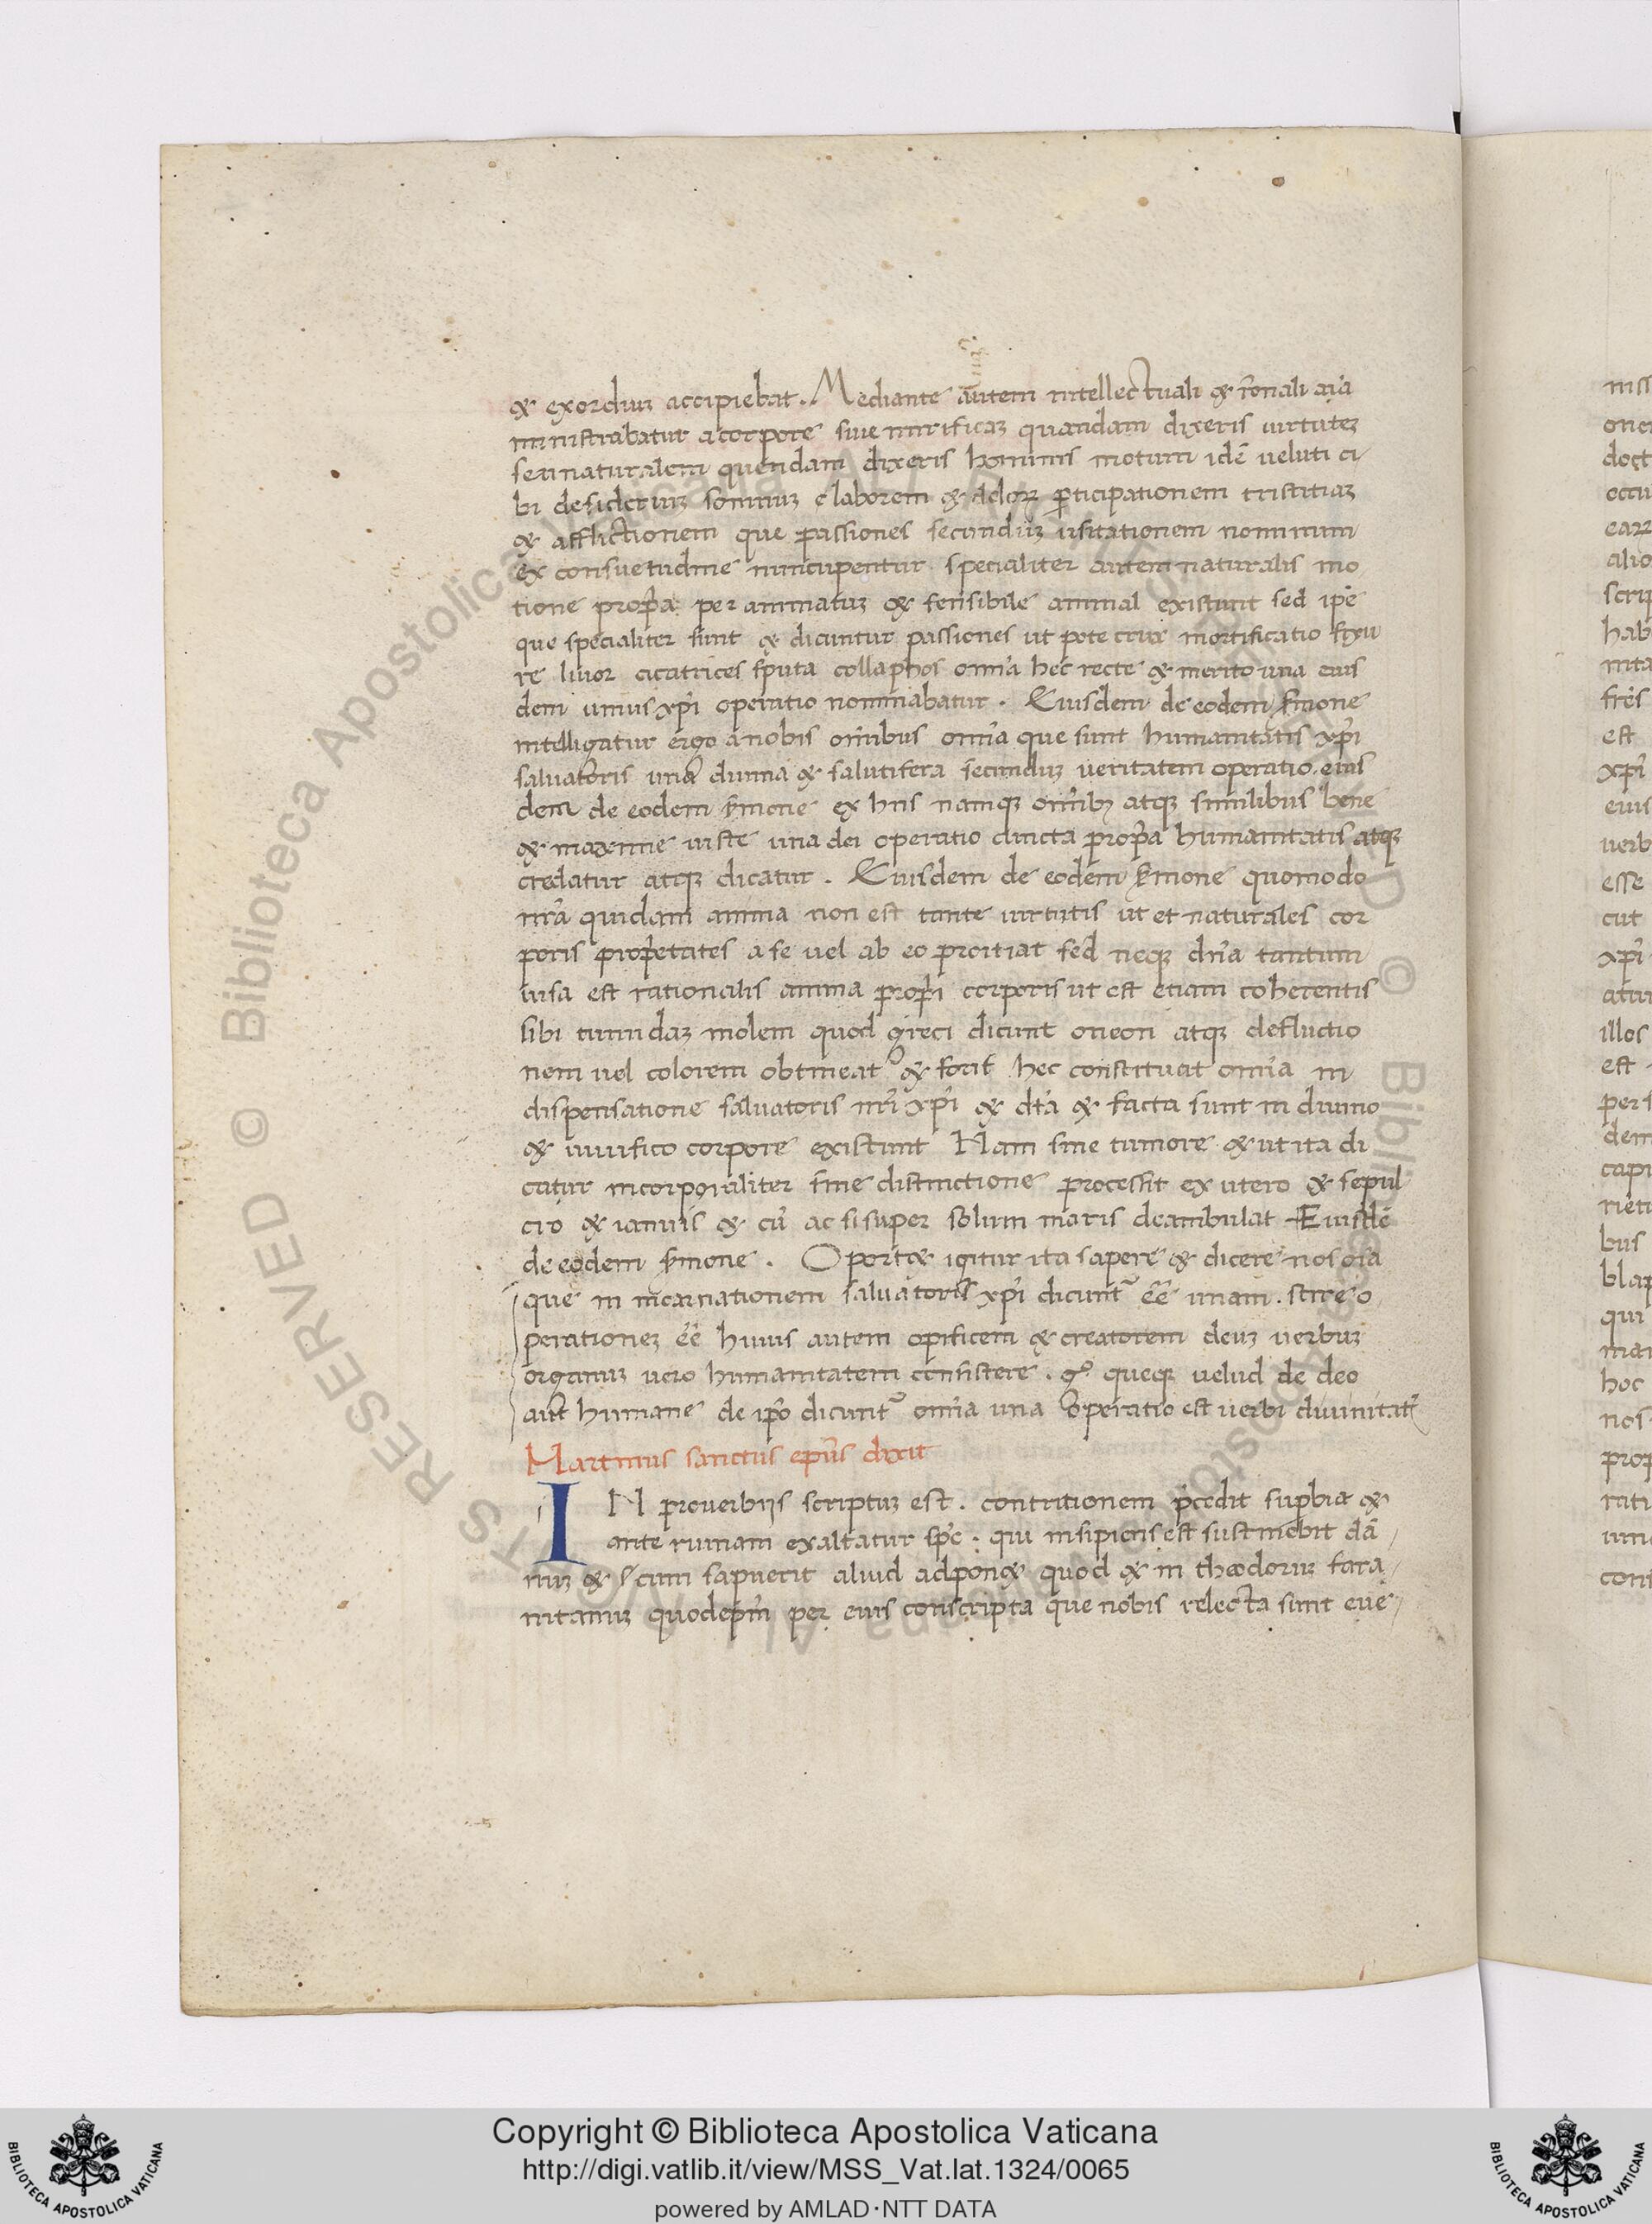 & exordiuʒ accipiebat. Mediante autem intellectuali & r̄onali aīa
ministrabatur a corpore siue mirificaʒ quandam dixeris uirtuteʒ
seu naturalem quendam dixeris hominis motum idē ueluti ci
bi desideriuʒ somnuʒ & laborem & doloꝝ ꝑticipationem tristitiaʒ
& afflictionem que passiones secunduʒ usitationem nominum
ex consuetudine nuncupentur specialiter autem naturalis mo
tione propͥa per animatuʒ & sensibile animal existunt sed ip̄e
que specialiter sunt & dicuntur passiones ut pote crux mortificatio
re liuor cicatrices sputa collaphos om̄ia hec recte & merito una eius
dem unius xp̄i operatio nominabatur. Eiusdem de eodem s̄mone
intelligatur ergo a nobis om̄ibus om̄ia que sunt humanitatis xp̄i
saluatoris una diuina & salutifera secunduʒ ueritatem operatio. eius
dem de eodem s̄mone ex hiis namqʒ om̄ibʒ atqʒ similibus bene
& maxime iuste una dei operatio cuncta propͥa humanitatis atqʒ
credatur atqʒ dicatur. Eiusdem de eodem s̄mone quomodo
nr̄a quidam anima non est tante uirtutis ut et naturales cor
poris propͥetates a se uel ab eo proitiat sed neqʒ dn̄a tantum
uisa est rationalis anima propͥi corporis ut est etiam coherentis
sibi tumidaʒ molem quod greci dicunt oncon atqʒ defluctio
nem uel colorem obtineat & hec constituat om̄ia in
dispensatione saluatoris nr̄i xp̄i & dc̄a & facta sunt in diuino
& uiuifico corpore existunt Nam sine tumore & ut ita di
catur incorporaliter sine distinctione processit ex utero & sepul
cro & ianuis & cū ac si super solum maris deambulat Eiusdē
de eodem s̄mone. Oport& igitur ita sapere & dicere nos oīa
que in incarnationem saluatoris xp̄i dicunt᷑ ēē unam. scire o
perationeʒ ēē huius autem opificem & creatorem deuʒ uerbuʒ
organuʒ uero humanitatem consistere. gͦ queqʒ uelud de deo
aut humane de ip̄o dicunt᷑ om̄ia una operatio est uerbi diuinitat᷑
Martinus sanctus ep̄us dixit
IN prouerbiis scriptuʒ est. contritionem p̄cedit suꝑbia &
ante ruinam exaltatur sp̄c. qui insipiens est sustinebit dā
nuʒ & cum sapuerit aliud adpon& quod & in theodoruʒ fara
nitanuʒ quodep̄m per eius conscripta que nobis relecta sunt eue
niss
onem
doct
occu
alio
scrip
hab
nita
frēs
est
xp̄i
eius
uerb
esse
cut
xp̄i
atur
illos
est
per s
dem
capi
bus
blap
qui
man
hoc
nos
prop
rati
cons
Copyright © Biblioteca Apostolica Vaticana
http://digi.vatlib.it/view/MSS_Vat.lat.1324/0065
powered by AMLAD·NTT DATA
BIBLIOTECA APOSTOLICA VATICANA
BIBLIOTECA APOSTOLICA VATICANA